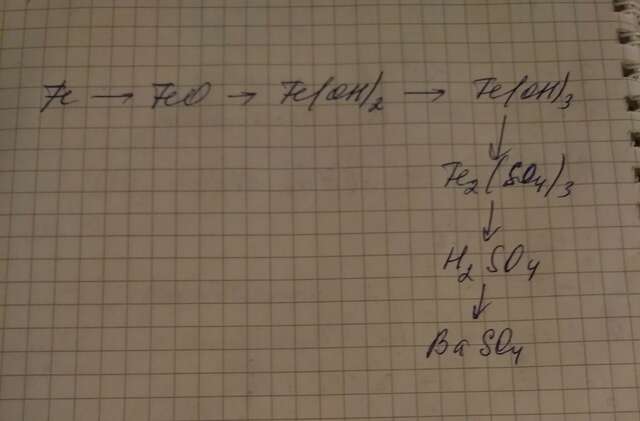 Fe → FeO → Fe(OH)2 → Fe(OH)3
↓
Fe2(SO4)3
↓
H2SO4
↓
BaSO4